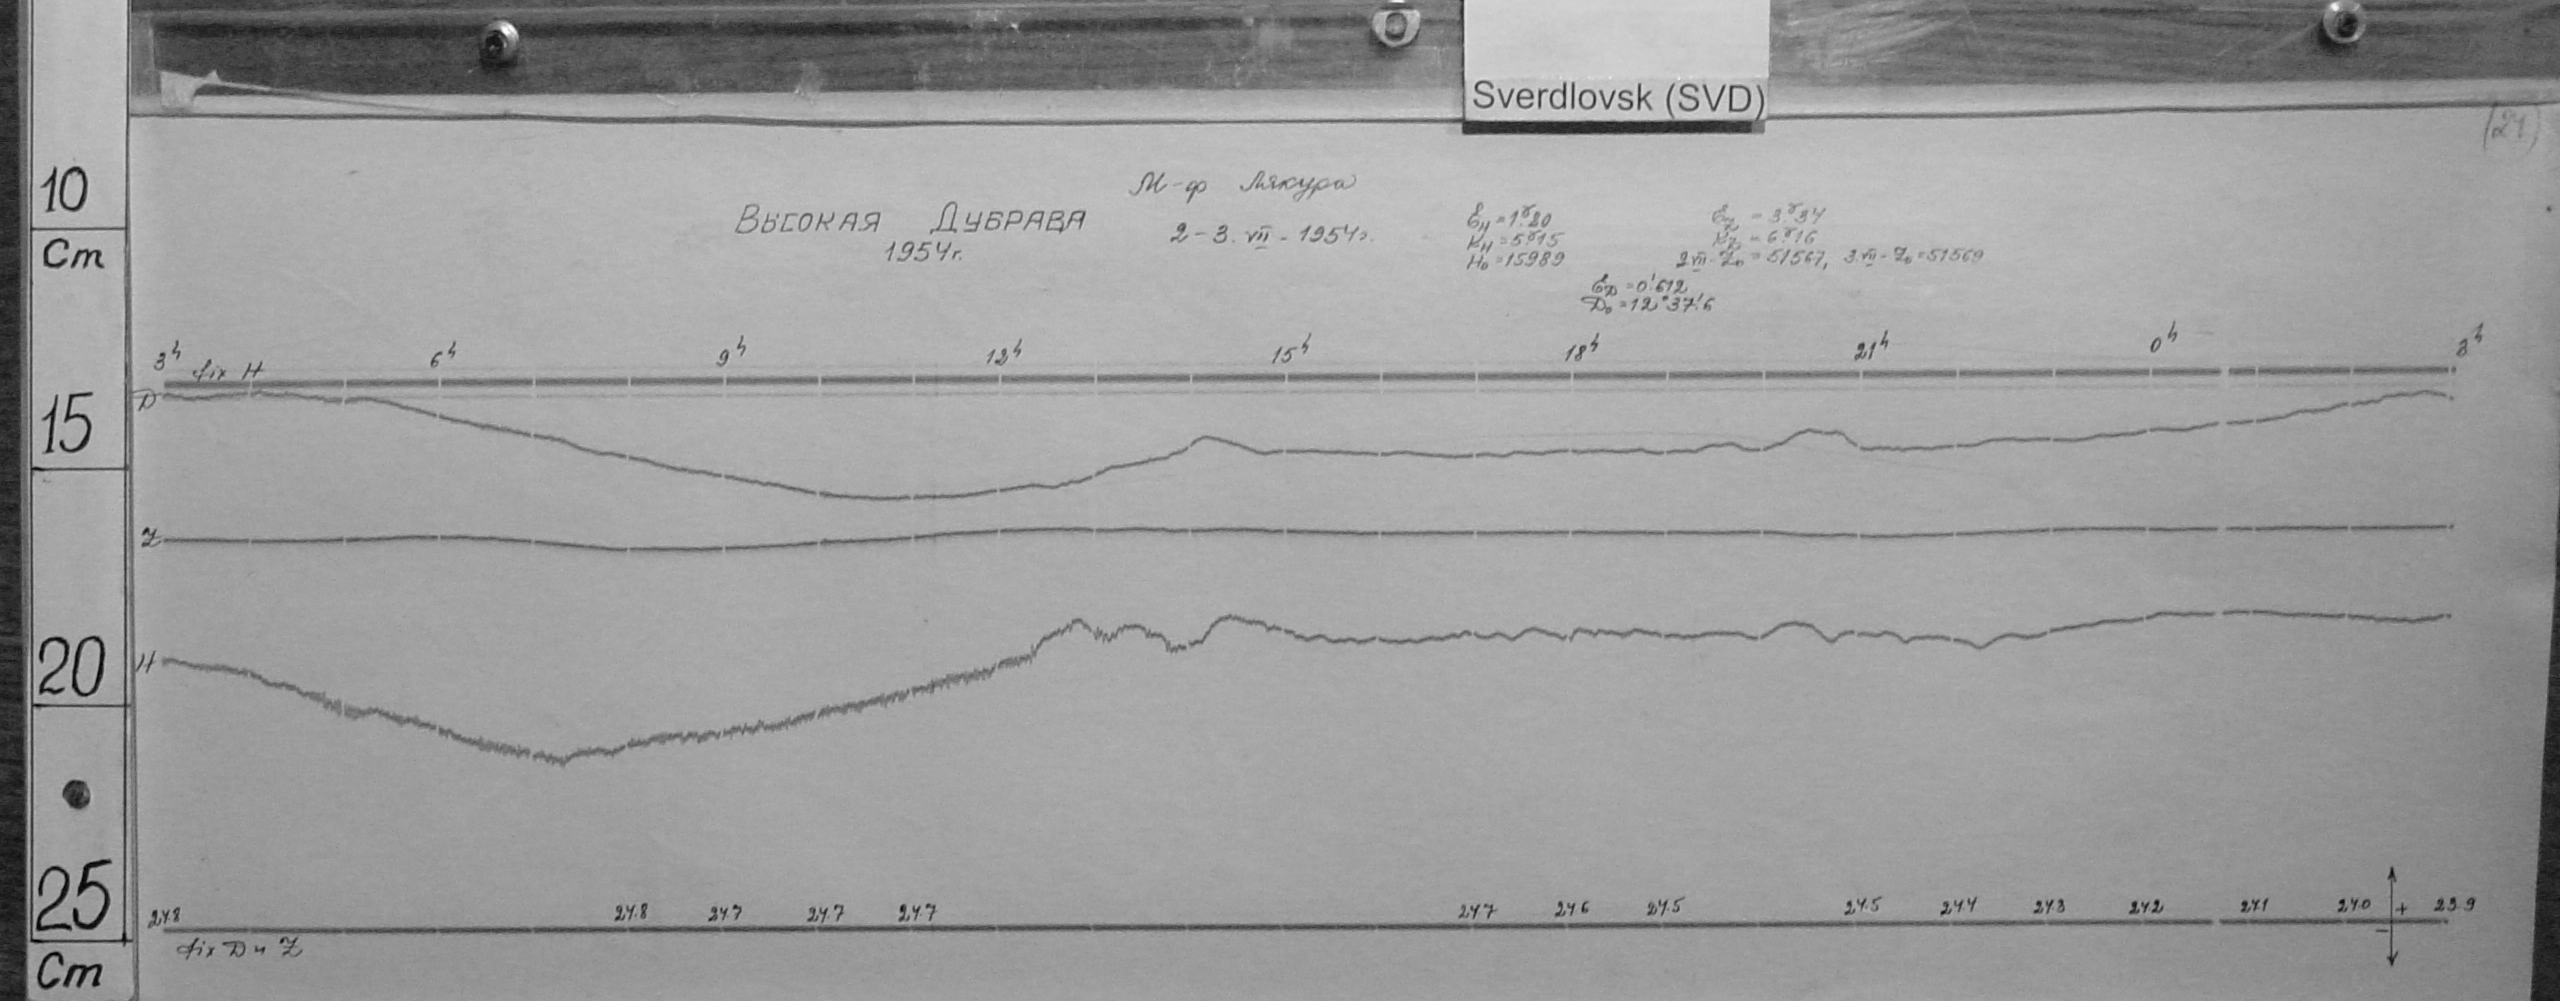 Sverdlovsk (SVD)
(24)
10
Cm
15
20
25
Cm
М-ф Мякура
ВЫСОКАЯ ДУБРАВА
1954г.
2-3. VII - 1954г.
Ɛн = 1.ᵞ80
Kн = 5.ᵞ15
H₀ = 15989
Ɛz = 3.ᵞ34
Kz = 6.ᵞ16
2 VII - Z₀ = 51567, 3.VII - Z₀ = 51569
ƐD = 0.'612
D₀ = 12°37.'6
3ʰ 6ʰ 9ʰ 12ʰ 15ʰ 18ʰ 21ʰ 0ʰ 3ʰ
fix H
D
Z
H
24.8 24.8 24.7 24.7 24.7 24.7 24.6 24.5 24.5 24.4 24.3 24.2 24.1 24.0 + 23.9
−
fix D и Z